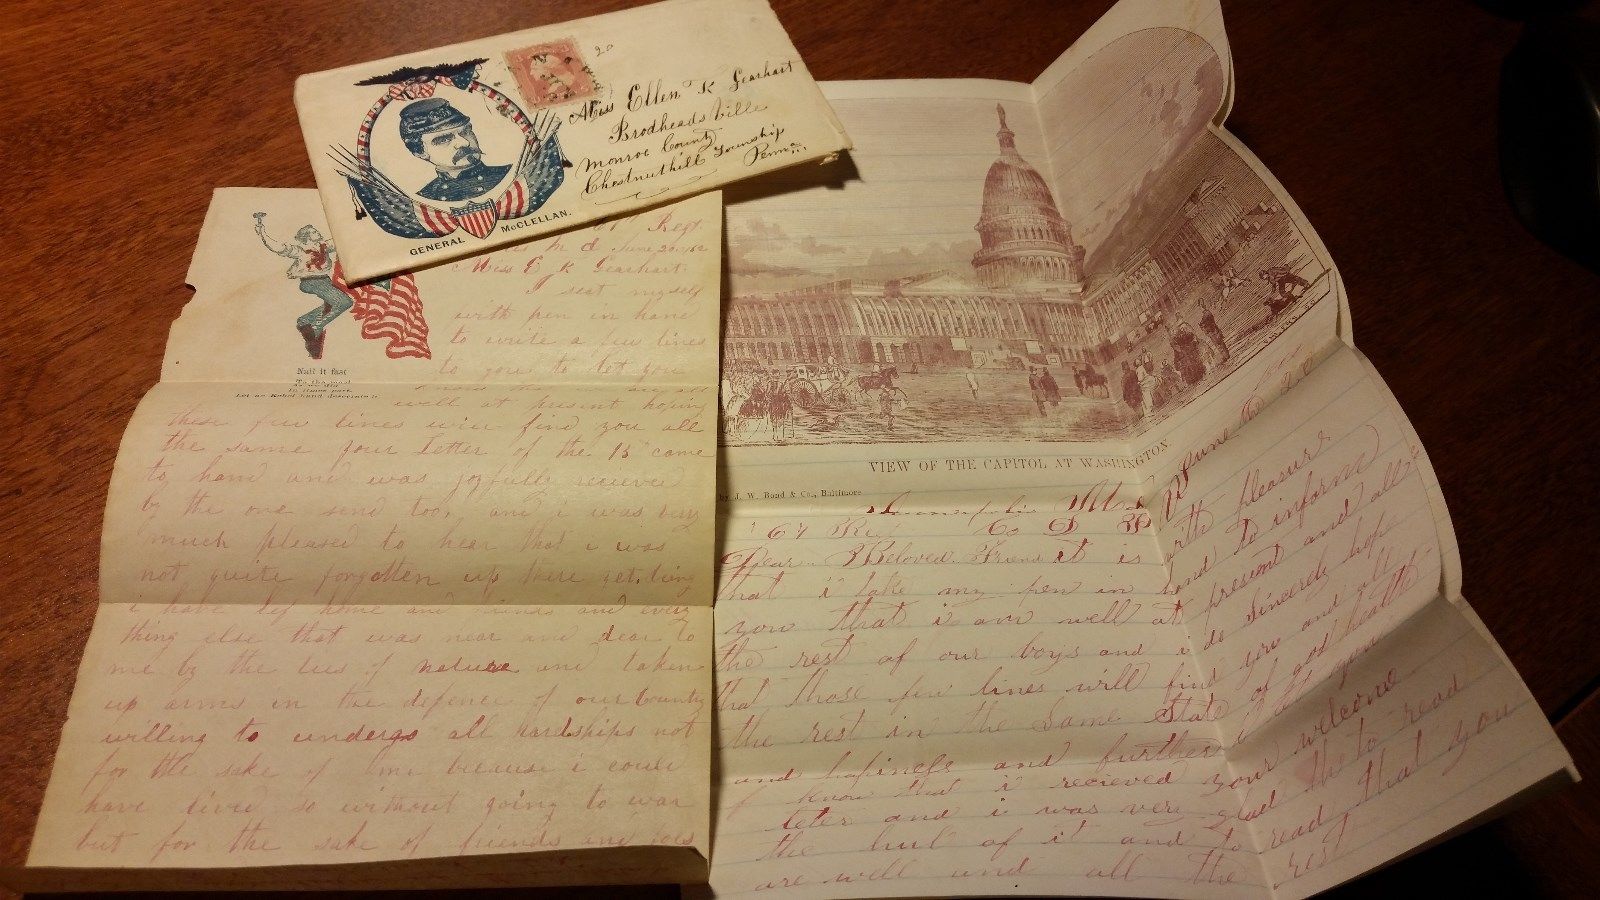 Miss Ellen K Gearhart
Brodheadsville
Monroe County
Chestnuthill Township
Penna
20
GENERAL McCLELLAN.
67 Regt.
Md June 20 / 62
Miss E K Gearhart
I seat myself
with pen in hand
to write a few lines
to you to let you
well at present hoping
Nail it fast
these few lines will find you all
the same your Letter of the 15 came
to hand and was joyfully recieved
by the one send too, and i was very
much pleased to hear that i was
not quite forgotten up there yet. being
i have left home and friends and every
thing else that was near and dear to
me by the ties of nature and taken
up arms in the defence of our Country
willing to undergo all hardships not
for the sake of because i could
have lived so without going to war
but for the sake of friends and
VIEW OF THE CAPITOL AT WASHINGTON.
by J. W. Bond & Co., Baltimore
Md June 20
67 Co D
Dear Beloved Friend it is with pleasure
that i take my pen in hand to inform
you that i am well at present and all
the rest of our boys and i do Sincerely hope
that those few lines will find you and all
the rest in the Same State of good health
and hapiness and further
know that i recieved your welcome
leter and i was very glad to read
the of it and to read that you
are well and all the rest